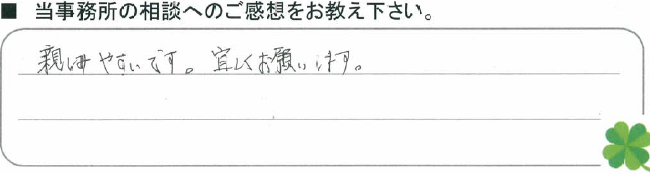 ■ 当事務所の相談へのご感想をお教え下さい。
親しみやすいです。宜しくお願いします。